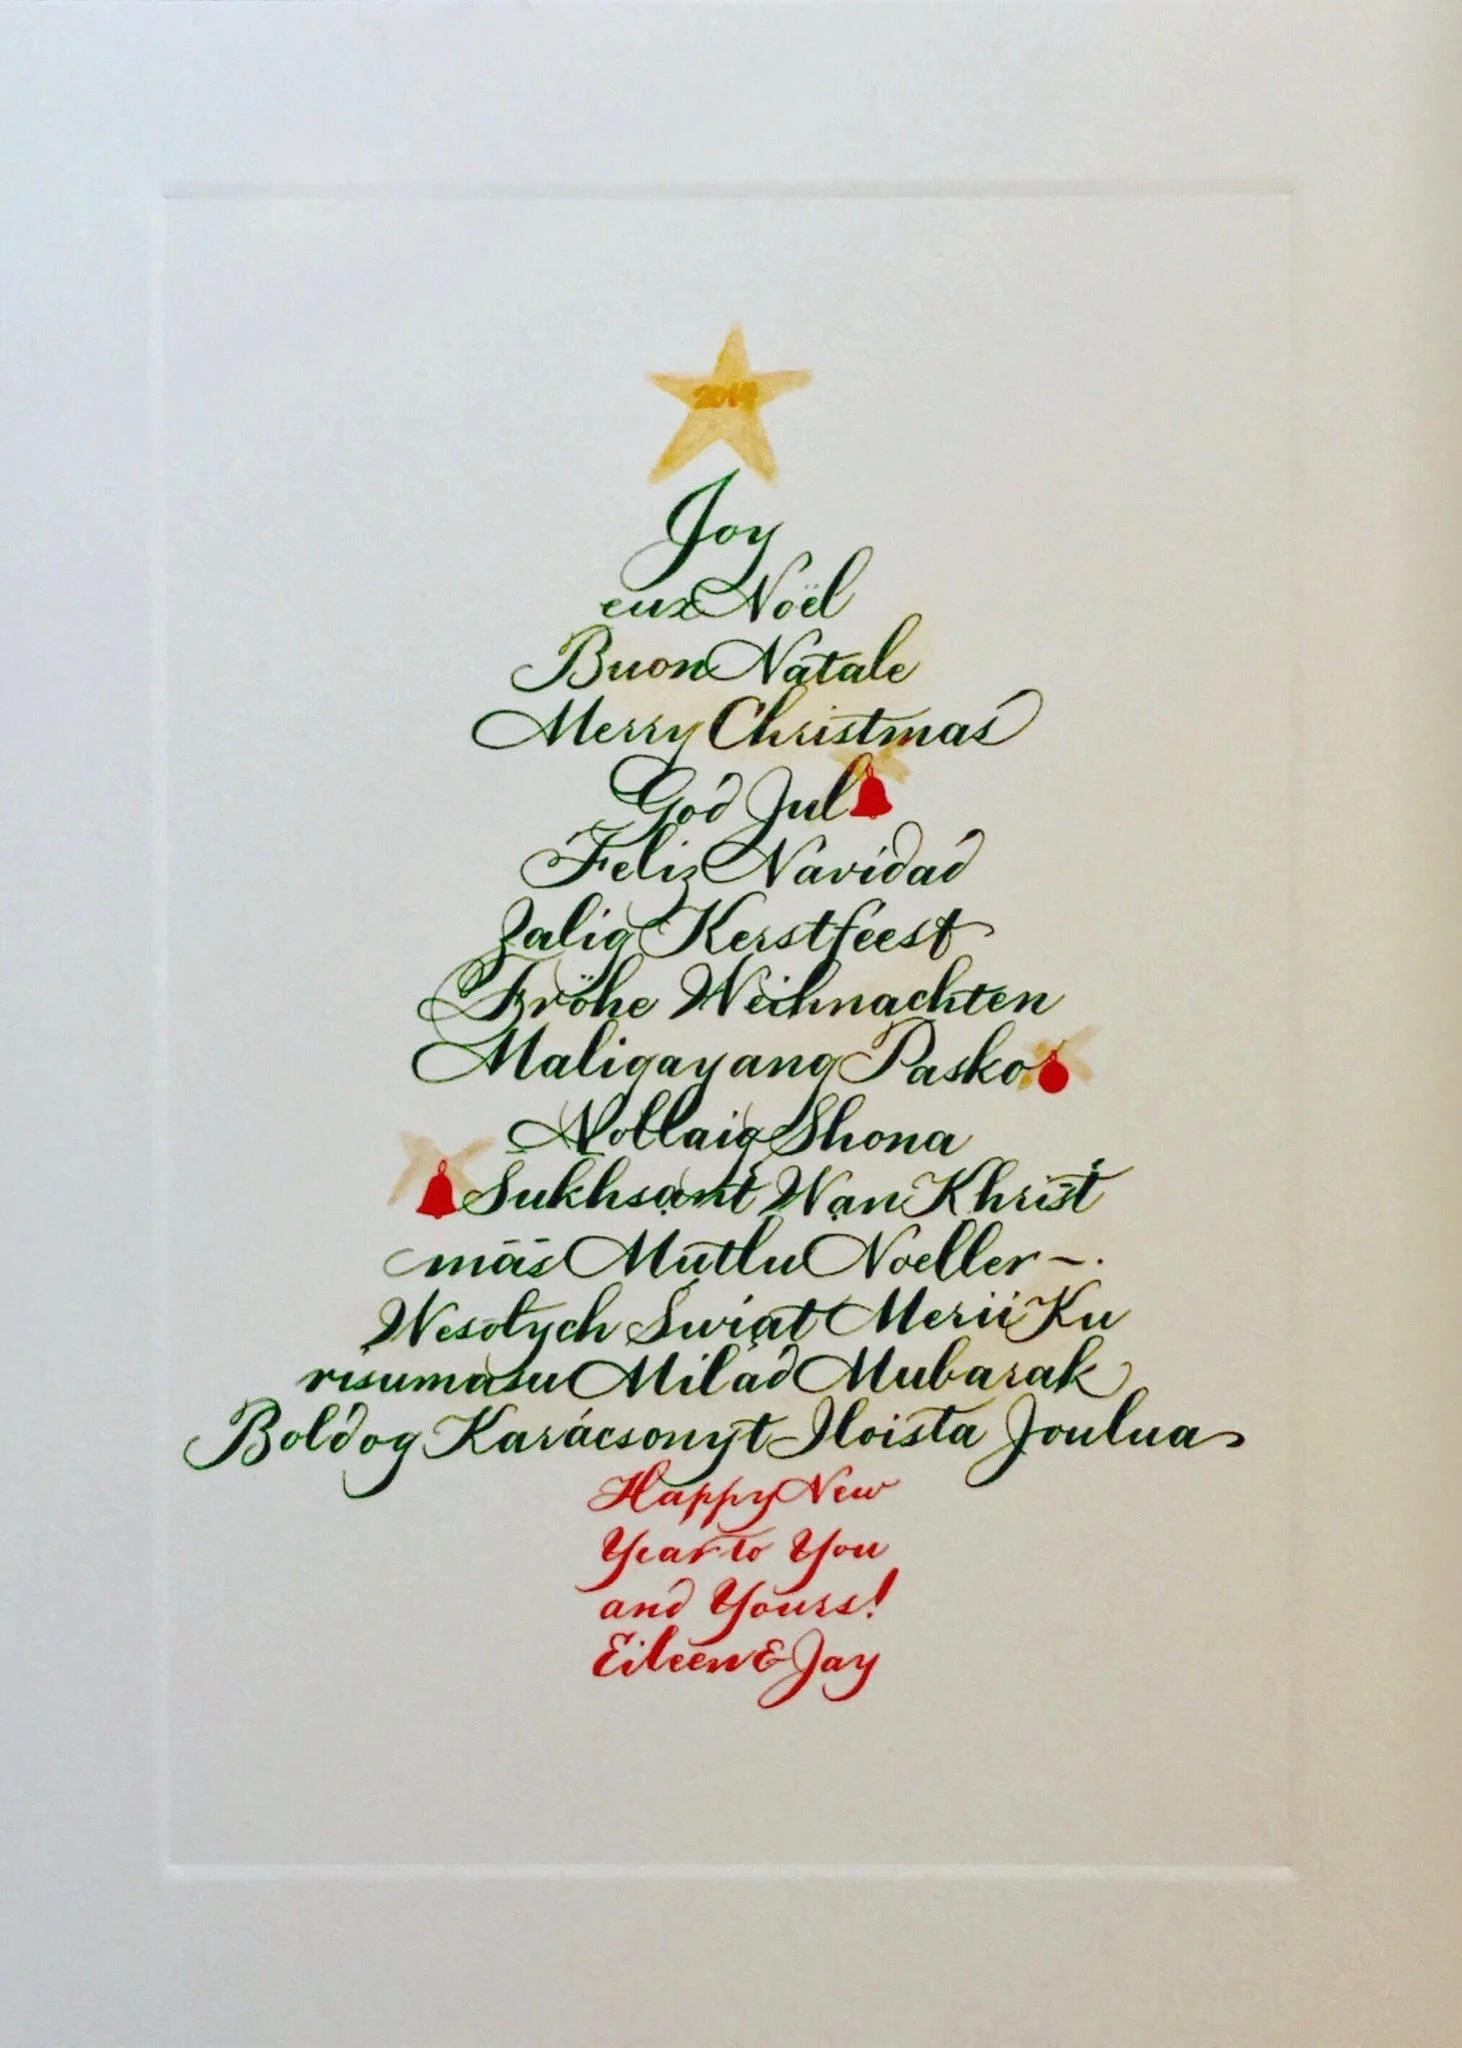 2019
Joy
eux Noël
Buon Natale
Merry Christmas
God Jul
Feliz Navidad
Zalig Kerstfeest
Fröhe Weihnachten
Maligayang Pasko
Nollaig Shona
Sukhsạnt Wạn Khrist̄
māš Mutlu Noeller ~.
Wesołych Świąt Merii Ku
risumasu Milad Mubarak
Boldog Karácsonyt Iloista Joulua
Happy New
Year to You
and Yours!
Eileen & Jay